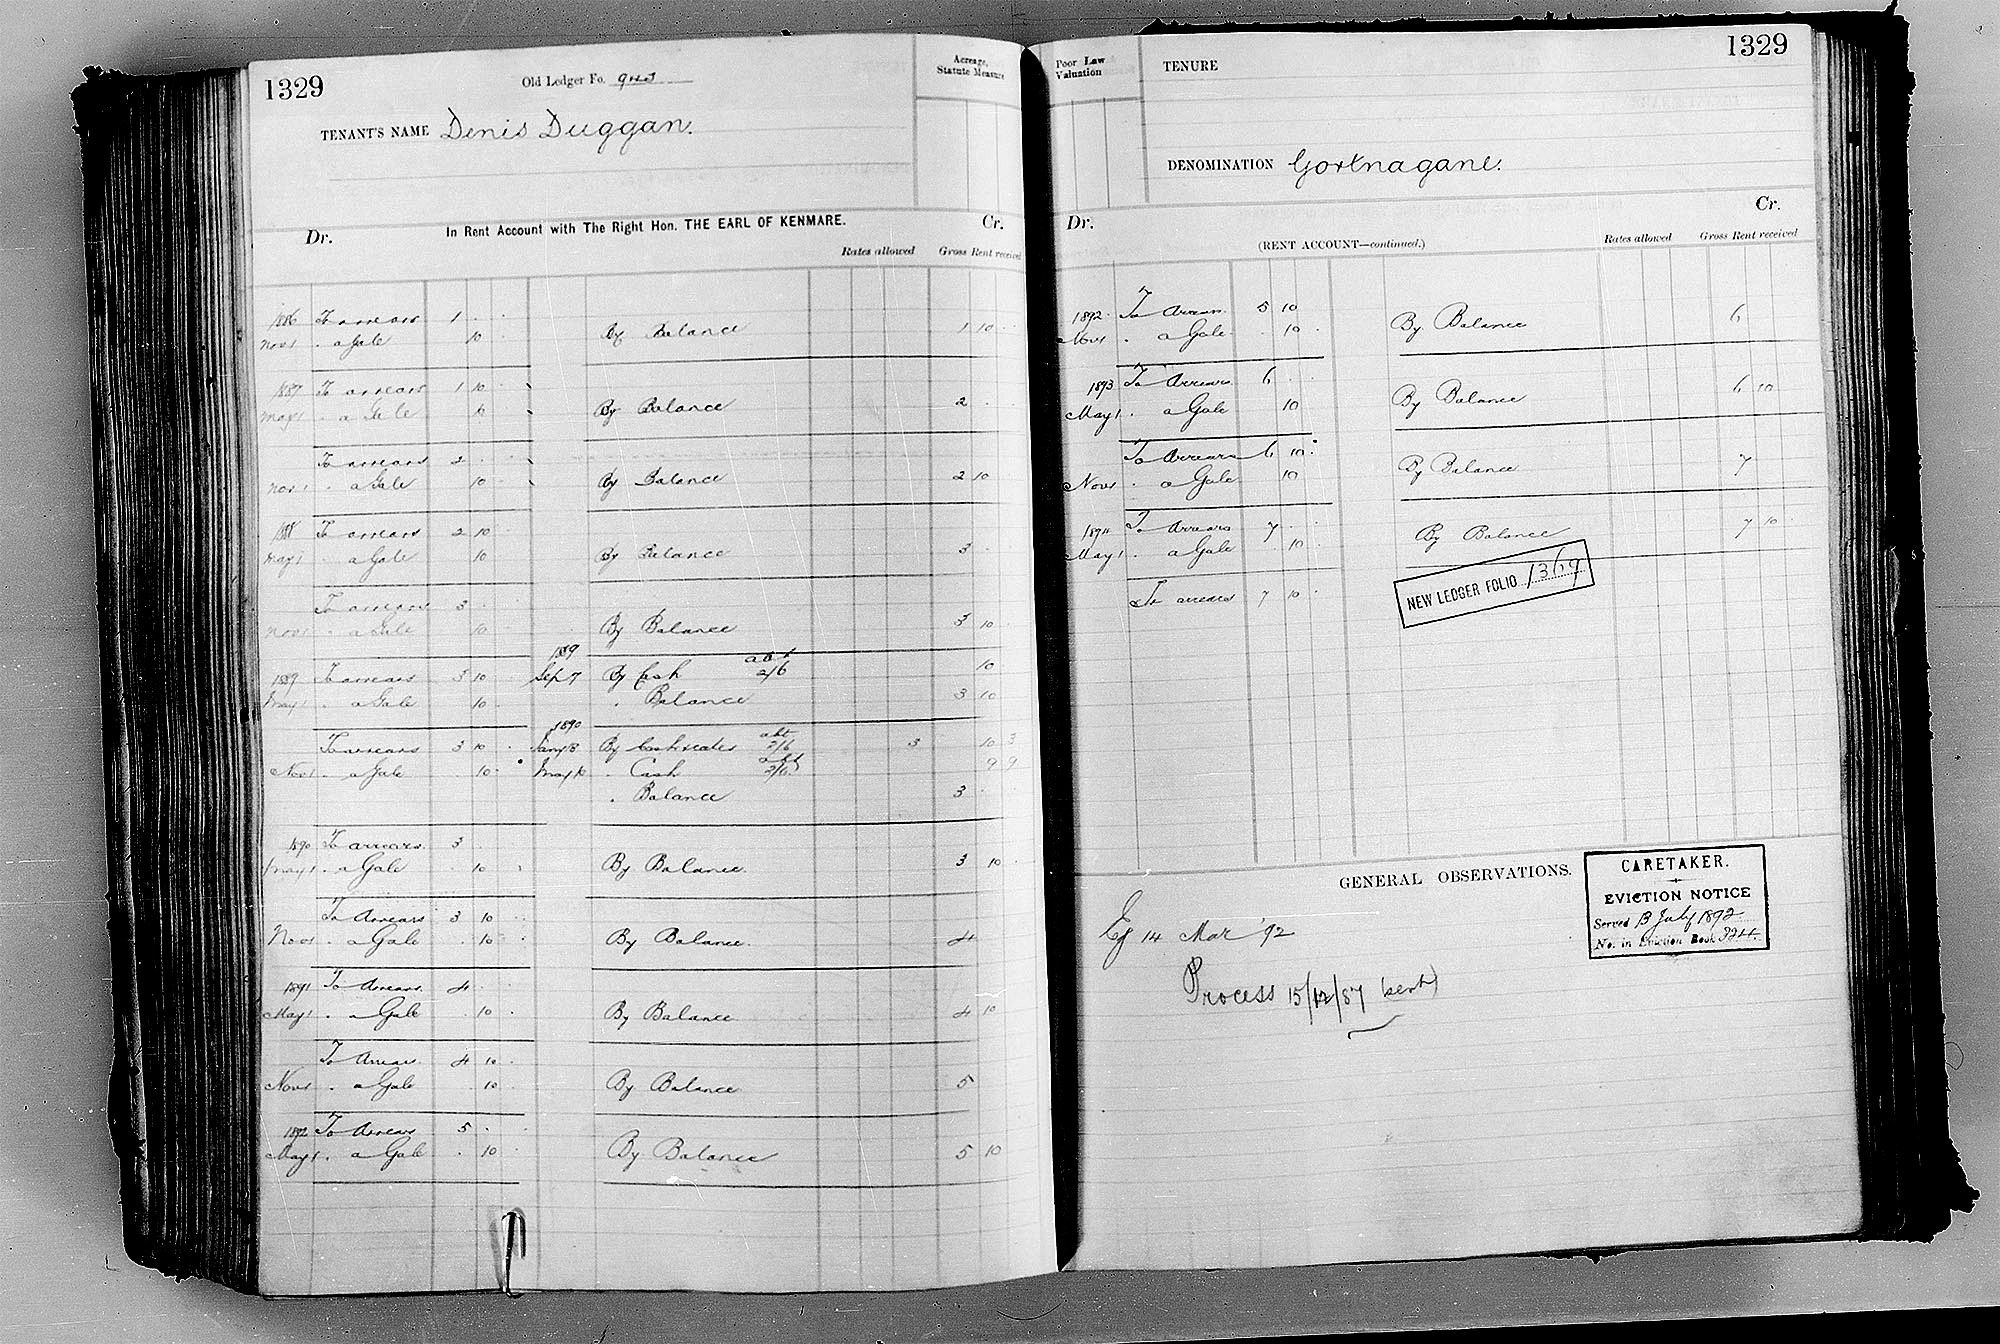 1329
Old Ledger Fo. 943
Acreage, Statute Measure
TENANT'S NAME Denis Duggan.
In Rent Account with The Right Hon. THE EARL OF KENMARE.
Dr. Cr.
Rates allowed Gross Rent received
1886 To arrears 1 . .
Nov 1 . a Gale 10 . By Balance 1 10 . .
1887 To arrears 1 10 .
May 1 . a Gale 10 By Balance 2 . .
To arrears 2 . .
Nov 1 . a Gale 10 . By Balance 2 10 .
1888 To arrears 2 10 .
May 1 . a Gale 10 By Balance 3 .
To arrears 3 . .
Nov 1 . a Gale 10 . By Balance 3 10 .
1889
1889 To arrears 3 10 . Sep 7 By Cash abt 2/6 10
May 1 . a Gale 10 . . Balance 3 10
1890
To arrears 3 10 . Jany 8 By Cash & rates abt 2/6 3 10 3
Nov 1 . a Gale . 10 . May 10 . Cash abt 2/6 9 9
. Balance 3 .
1890 To arrears. 3 .
May 1 . a Gale . 10 . By Balance. 3 10 .
To Arrears 3 10 .
Nov 1 . a Gale . 10 . By Balance. 4
1891 To Arrears. 4 .
May 1 . a Gale . 10 . By Balance 4 10
To Arrears. 4 10 .
Nov 1 . a Gale 10 . By Balance 5
1892 To Arrears 5 .
May 1 . a Gale . 10 . By Balance 5 10
1329
Poor Law Valuation
TENURE
DENOMINATION Gortnagane.
Dr. Cr.
(RENT ACCOUNT—continued.)
Rates allowed Gross Rent received
1892 To Arrears 5 10
Nov 1 . a Gale . 10 . By Balance 6
1893 To Arrears. 6 . .
May 1 . a Gale 10 By Balance 6 10
To Arrears 6 10 .
Nov 1 . a Gale 10 By Balance 7
1894 To Arrears 7 . .
May 1 . a Gale . 10 . By Balance 7 10
To arrears 7 10 .
NEW LEDGER FOLIO 1369
GENERAL OBSERVATIONS.
CARETAKER.
EVICTION NOTICE
Served 13 July 1892
No. in Eviction Book 3244.
Eg 14 Mar '92
Process 15/12/87 (sent)